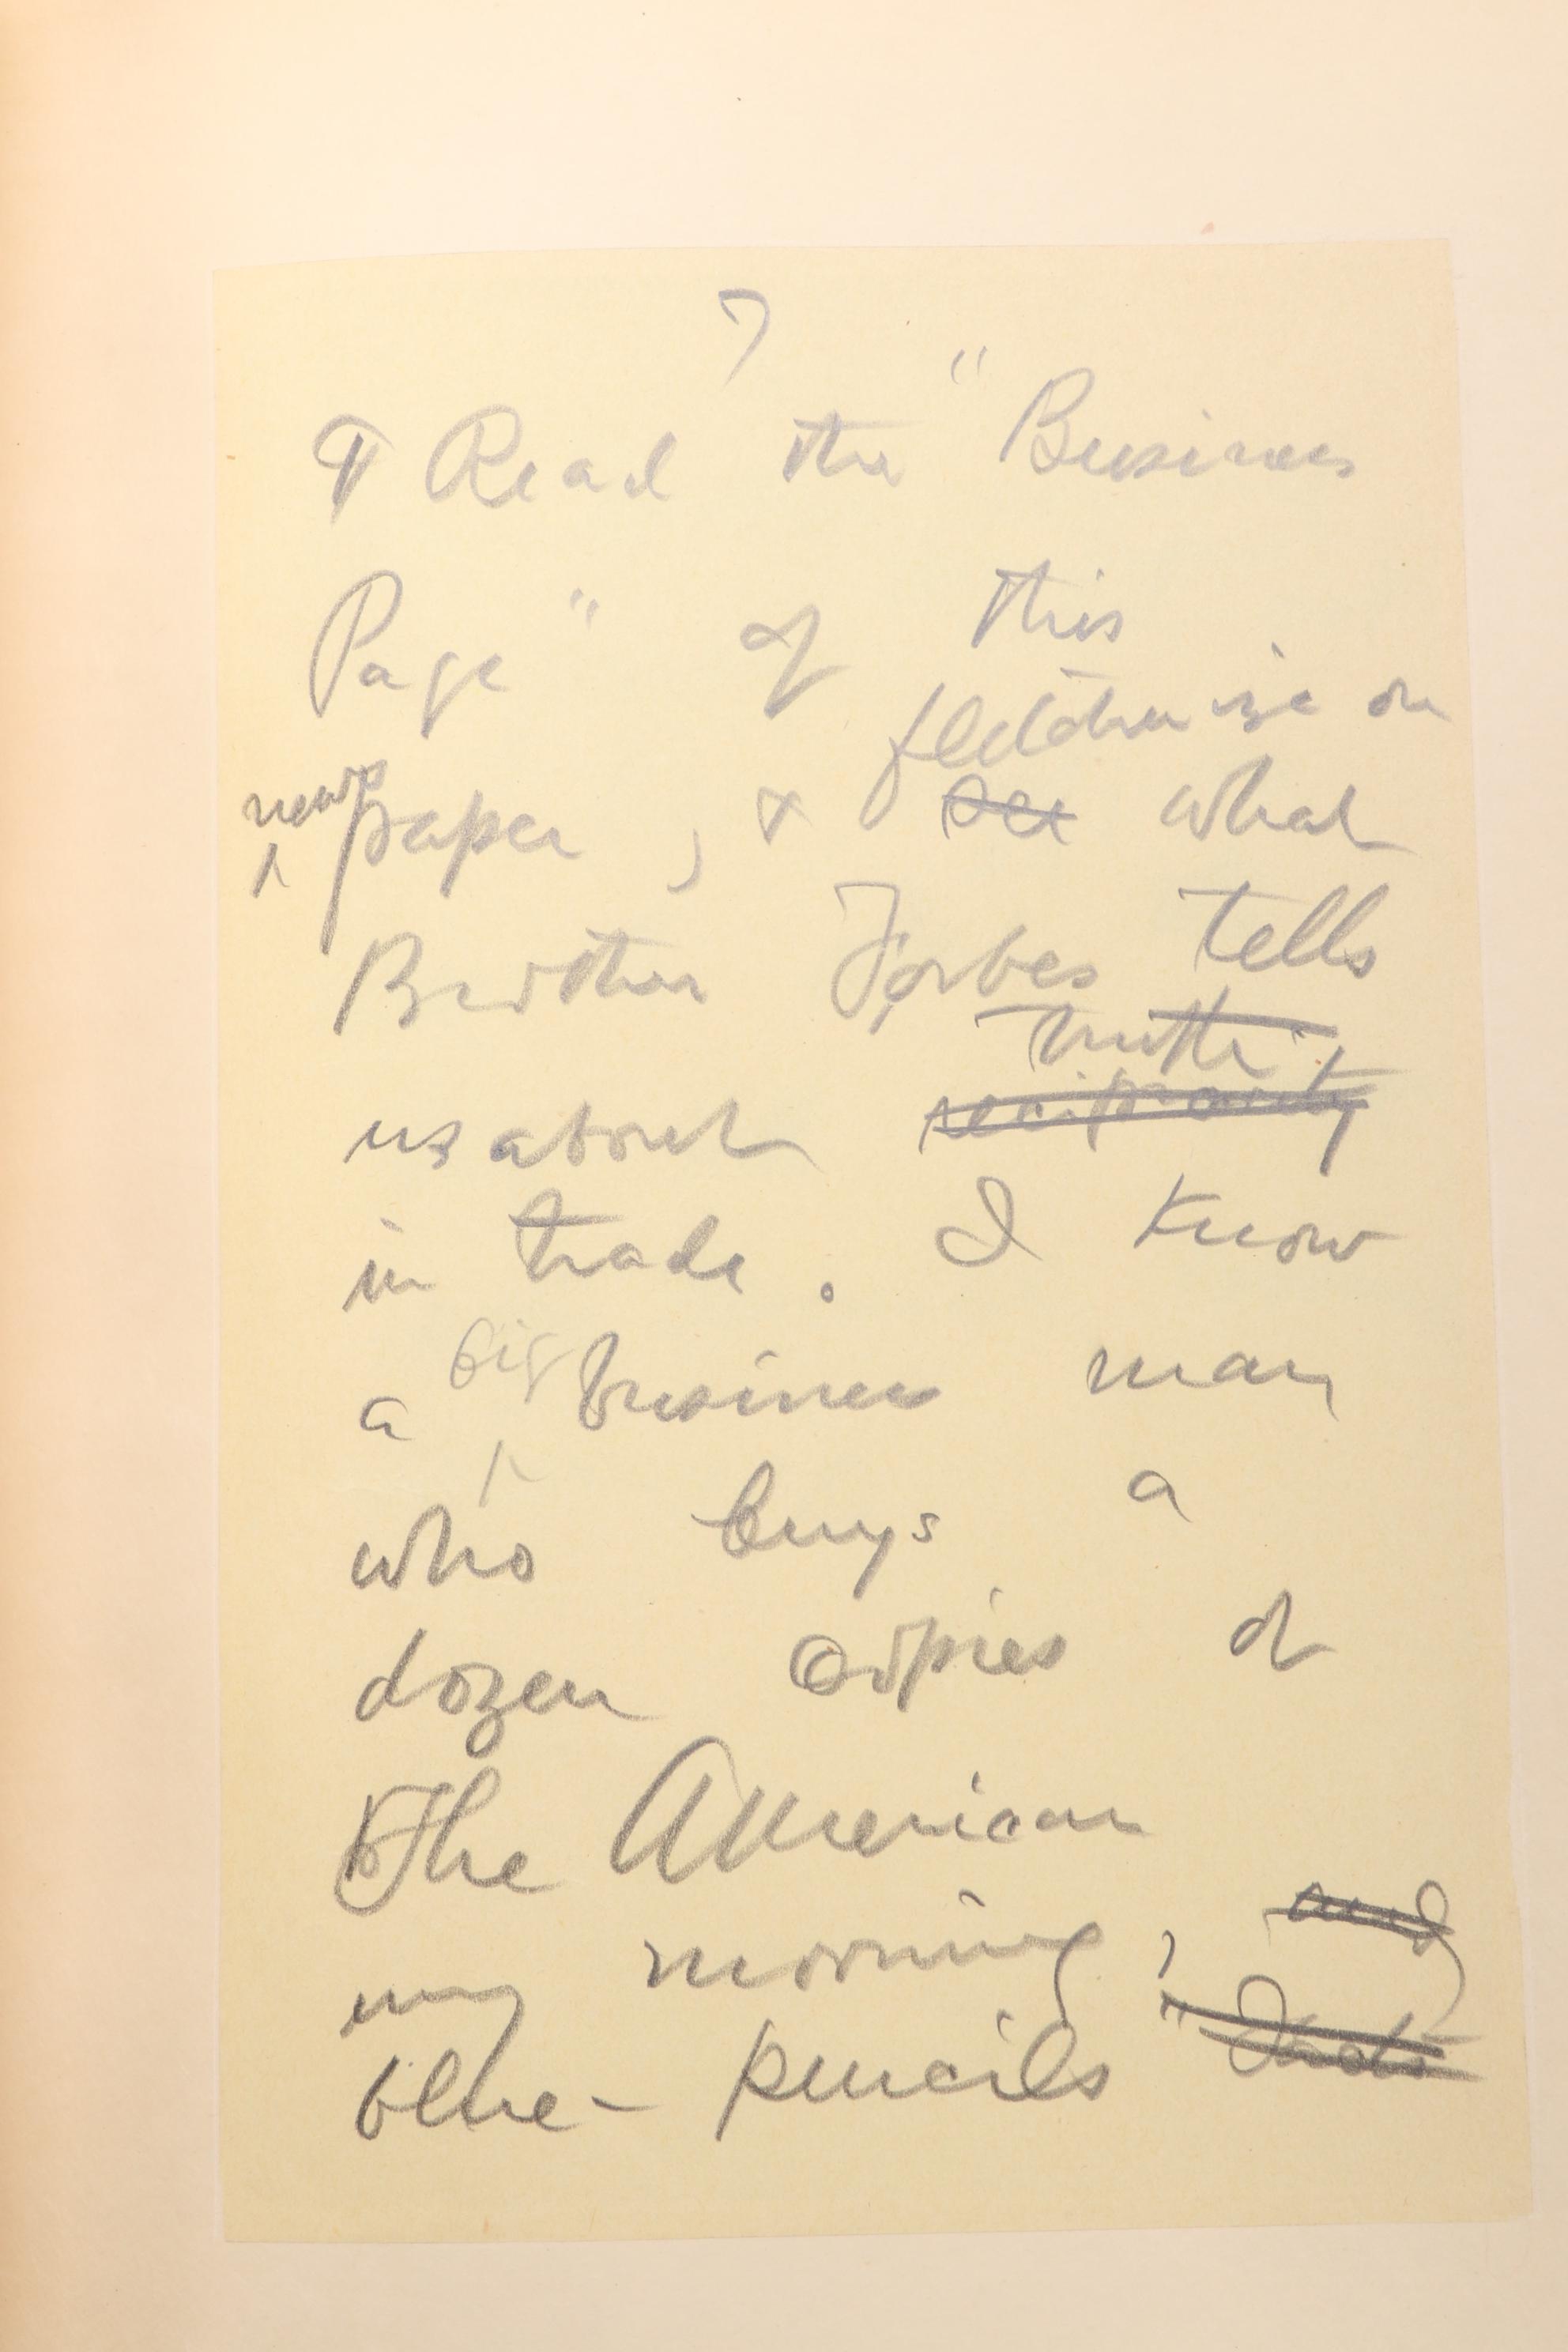 7
¶ Read the "Business
Page" of this
fletcherize on
news
paper, & see what
Brother Forbes tells
truth
us about reciprocity
in trade. I know
big
a business man
who buys a
dozen copies of
The American
morning, and
blue-pencils